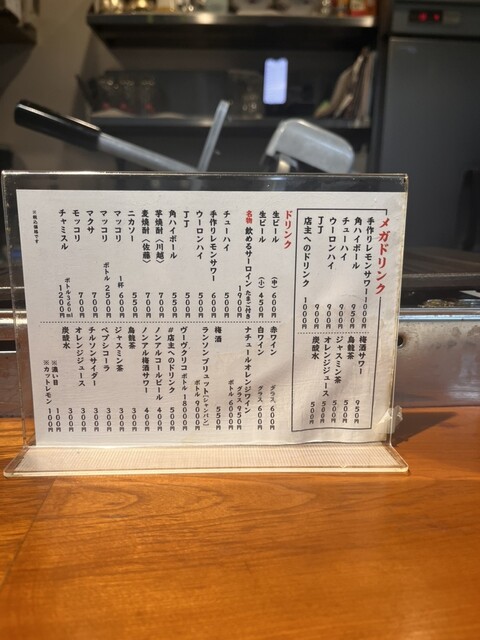 メガドリンク
手作りレモンサワー 1000円
角ハイボール 900円
チューハイ 900円
ウーロンハイ 900円
丁丁 900円
店主へのドリンク 1000円
梅酒サワー 950円
烏龍茶 500円
ジャスミン茶 500円
オレンジジュース 500円
炭酸水 500円
ドリンク
生ビール (中) 600円
生ビール (小) 450円
名物 飲めるサーロイン たまご付き 1900円
チューハイ 500円
手作りレモンサワー 600円
ウーロンハイ 500円
丁丁 500円
角ハイボール 550円
芋焼酎〈川越〉 700円
麦焼酎〈佐藤〉 700円
ニカソー 550円
マッコリ 1杯 600円
マッコリ ボトル 2500円
マクサ 700円
モッコリ 700円
チャミスル ボトル360ml 1200円
※税込価格です
赤ワイン グラス 600円
白ワイン グラス 600円
ナチュールオレンジワイン グラス 950円
ボトル 6000円
梅酒 550円
ランソンブリュット(シャンパン) ボトル 9000円
ヴーヴクリコ ボトル 18000円
#店主へのドリンク 500円
ノンアルコールビール 400円
ノンアル梅酒サワー 400円
烏龍茶 300円
ジャスミン茶 300円
ペプシコーラ 300円
チルソンサイダー 300円
オレンジジュース 300円
炭酸水 300円
※濃い目 100円
※カットレモン 100円